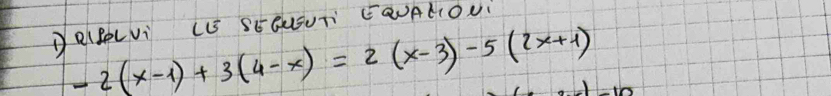 1) RISOLVI LE SEGUENTI EQUAZIONI
-2(x-1)+3(4-x) = 2(x-3)-5(2x+1)